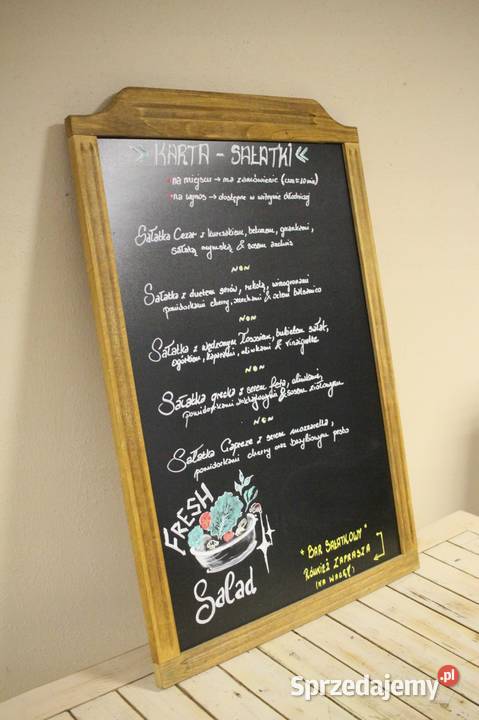 » KARTA - SAŁATKI «
• na miejscu → na zamówienie (czas ≈ 10 min)
• na wynos → dostępne w witrynie chłodniczej
Sałatka Cezar z kurczakiem, bekonem, grzankami,
sałatą rzymską & sosem anchois
Sałatka z duetem serów, rukolą, winogronami
pomidorkami cherry, orzechami & octem balsamico
Sałatka z wędzonym łososiem, bukietem sałat,
ogórkiem, kaparami, oliwkami & vinaigrette
Sałatka grecka z serem feta, oliwkami,
pomidorkami koktajlowymi & sosem ziołowym
Sałatka Caprese z serem mozzarella,
pomidorkami cherry oraz bazyliowym pesto
FRESH
Salad
"BAR SAŁATKOWY"
RÓWNIEŻ ZAPRASZA
(NA WAGĘ)
Sprzedajemy.pl